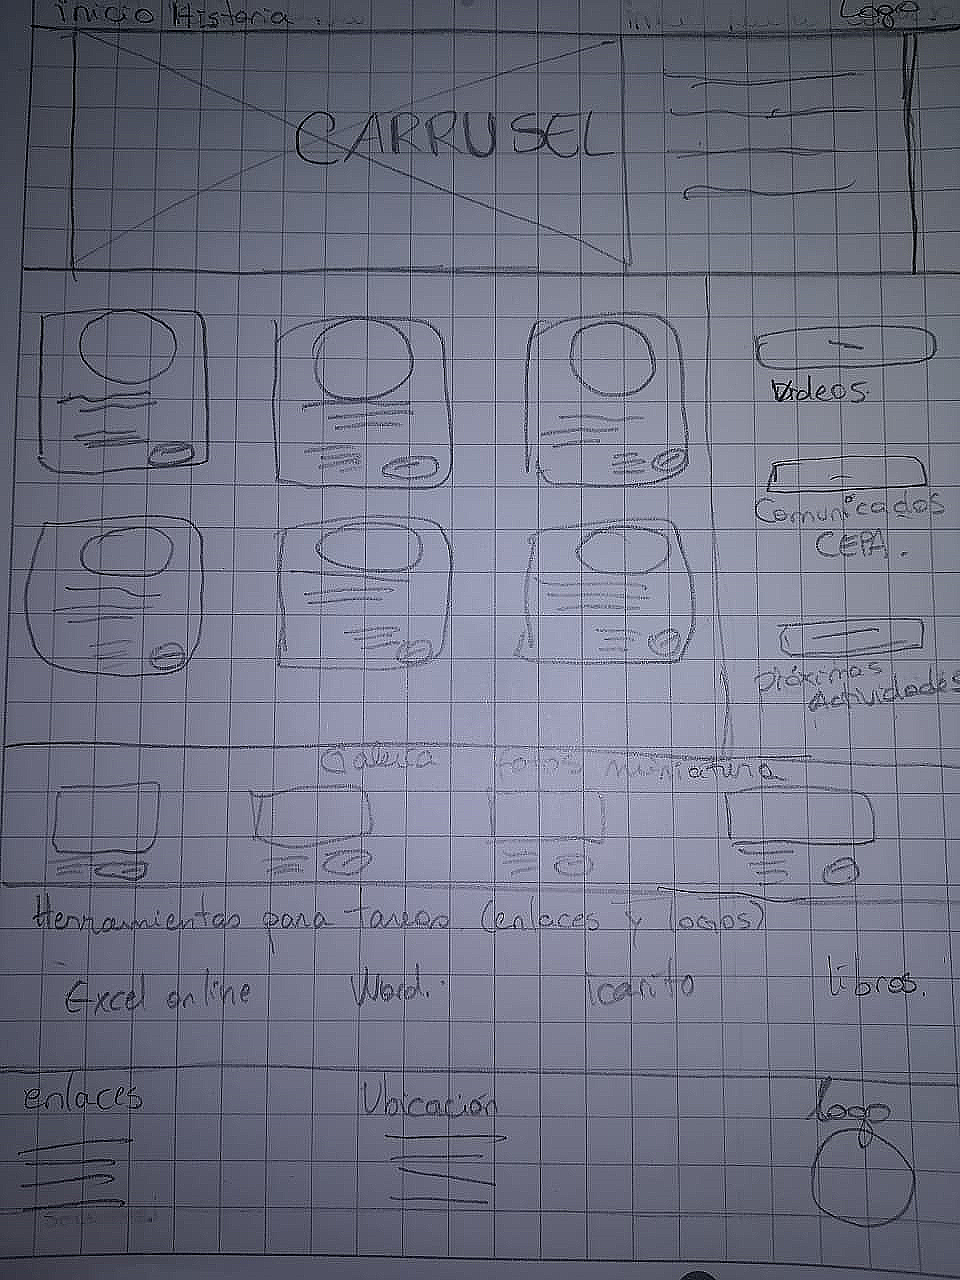 inicio Historia
Logo
CARRUSEL
Videos.
Comunicados
CEPA.
próximas
Actividades
Galería fotos miniatura
Herramientas para tareas (enlaces y logos)
Excel online Word. icarito libros.
enlaces Ubicación logo